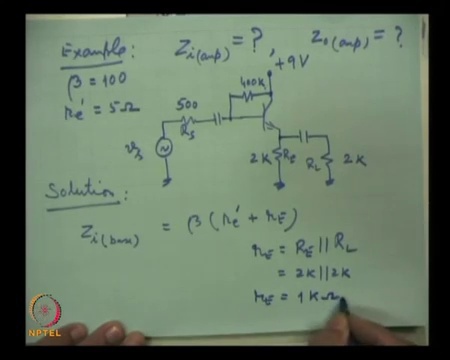 Example: Zi(amp) = ?, Zo(amp) = ?
β = 100
re' = 5Ω
+9V
400K
500
Rs
vs
2K RE
RL 2K
Solution:
Zi(base) = β (re' + rE)
rE = RE || RL
= 2K || 2K
rE = 1KΩ
NPTEL